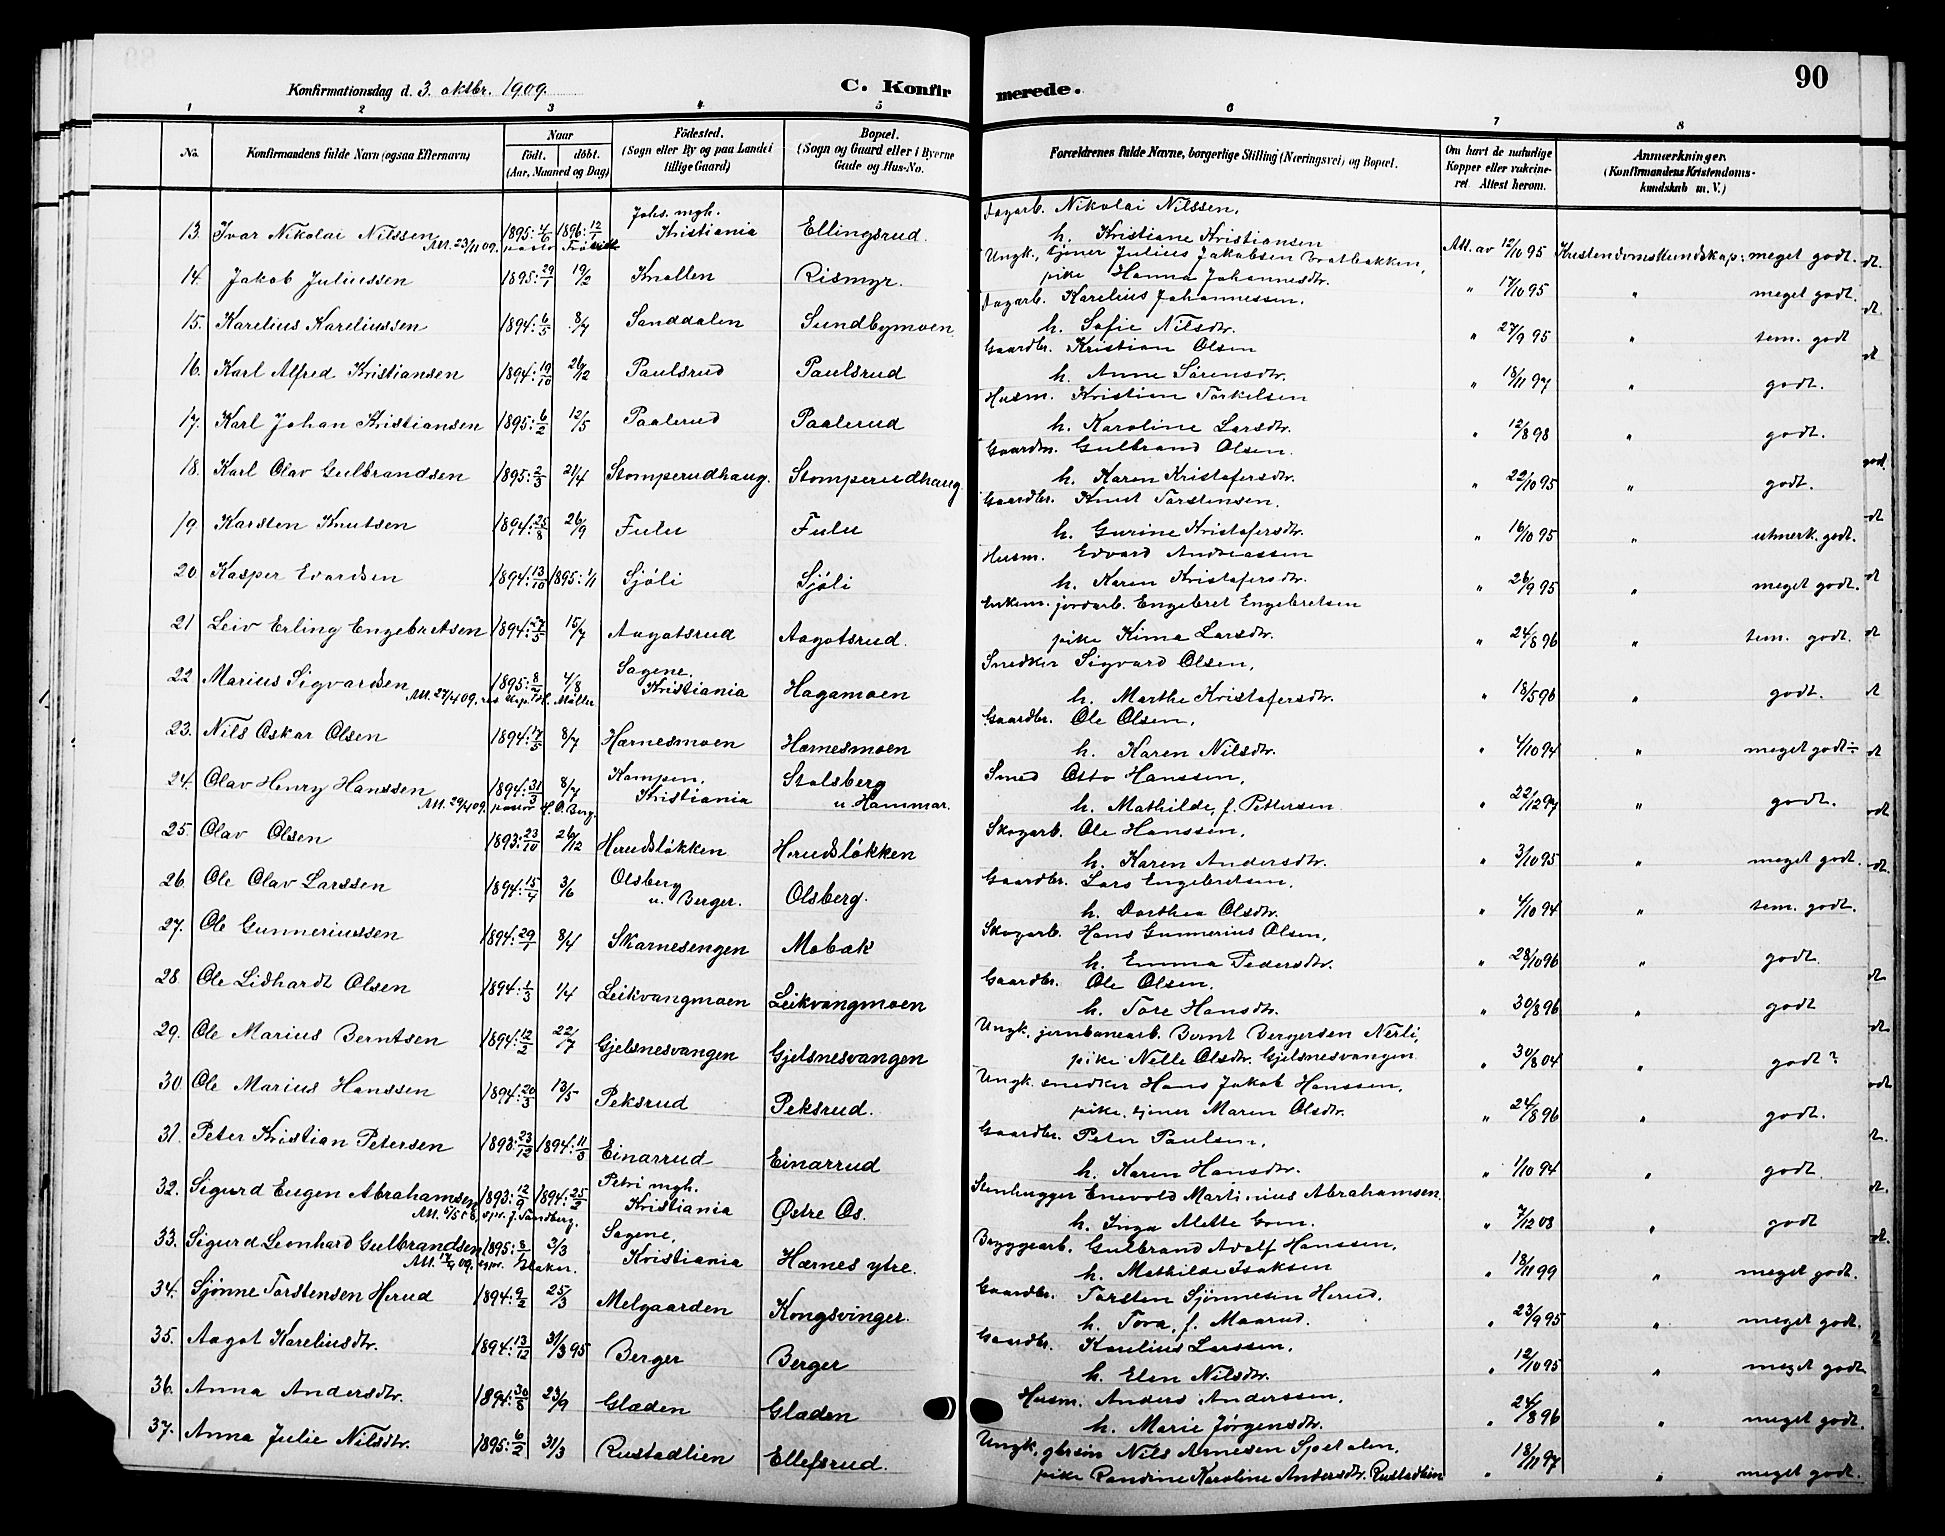 90
Konfirmationsdag d. 3. oktbr. 1909.
C. Konfirmerede.
1 2 3 4 5 6 7 8
No.
Konfirmandens fulde Navn (ogsaa Efternavn)
Naar
født. døbt.
(Aar, Maaned og Dag)
Fødested.
(Sogn eller By og paa Landet
tillige Gaard)
Bopæl.
(Sogn og Gaard eller i Byerne
Gade og Hus-No.
Forældrenes fulde Navne, borgerlige Stilling (Næringsvei) og Bopæl.
Om havt de naturlige
Kopper eller vakcine-
ret. Attest herom.
Anmærkninger.
(Konfirmandens Kristendoms-
kundskab m. V.)
Dagarb. Nikolai Nilssen,
13. Ivar Nikolai Nilssen 1895: 4/6 1896: 12/1 Johs. mgh. Kristiania Ellingsrud. h. Kristiane Kristiansen Att. av 12/10 95 Kristendomskundskap: meget godt.
Att. 23/11 09.
Ungk., tjener Julius Jakobsen Bratbakken,
14. Jakob Juliussen 1895: 29/1 19/2 Knollen Rismyr. pike Hanna Johannesdtr. " 17/10 95 " meget godt.
Dagarb. Karelius Johannessen,
15. Karelius Kareliussen 1894: 6/5 8/7 Sanddalen Sundbymoen h. Sofie Nilsdtr. " 27/9 95 " tem. godt
Gaardbr. Kristian Olsen
16. Karl Alfred Kristiansen 1894: 19/10 26/12 Paulsrud Paulsrud h. Anne Sørensdtr. " 18/11 97 " godt.
Husm. Kristian Torkelsen
17. Karl Johan Kristiansen 1895: 6/2 12/5 Paalerud Paalerud h. Karoline Larsdtr. " 12/8 98 " godt.
Gaardbr. Gulbrand Olsen.
18. Karl Olav Gulbrandsen 1895: 2/3 21/4 Stomperudhaug. Stomperudhaug. h. Karen Kristofersdtr. " 22/10 95 " godt.
Gaardbr. Knut Torstensen.
19. Karsten Knutsen 1894: 25/8 26/9 Fulu Fulu h. Gurine Kristofersdtr. " 16/10 95 " utmerk. godt.
Husm. Edvard Andreassen
20 Kasper Evardsen 1894: 13/10 1895: 1/1 Sjøli Sjøli h. Karen Kristofersdtr. " 26/9 95 " meget godt.
Enkem. jordarb. Engebret Engebretsen
21 Leiv Erling Engebretsen 1894: 27/5 15/7 Aagotsrud Aagotsrud. pike Kima Larsdtr. " 24/8 96 " tem. godt.
Snedker Sigvard Olsen,
22 Marius Sigvardsen 1895: 8/7 4/8 Sagene, Kristiania Hagamoen h. Marthe Kristofersdtr. " 18/5 96 " godt.
Att. 27/4 09.
Gaardbr. Ole Olsen,
23. Nils Oskar Olsen 1894: 17/5 8/7 Hærnesmoen Hærnesmoen h. Karen Nilsdtr. " 4/10 94 " meget godt ÷
Smed Otto Hanssen,
24. Olav Henry Hanssen 1894: 31/3 8/7 Kampen, Kristiania Stalsberg u. Hammar. h. Mathilde, f. Pettersen " 22/12 97 " godt.
Att. 29/4 09. pastor H. O. Berg.
Skogarb. Ole Hanssen,
25. Olav Olsen 1893: 23/10 26/12 Herudsløkken Herudsløkken h. Karen Andersdtr. " 3/10 95 " meget godt.
Gaardbr. Lars Engebretsen,
26 Ole Olav Larssen 1894: 15/4 3/6 Olsberg u. Berger. Olsberg. h. Dorthea Olsdtr. " 4/10 94 " tem. godt.
Skogarb. Hans Gunnerius Olsen,
27. Ole Gunneriussen 1894: 29/1 8/4 Skarnesengen Mobæk h. Emma Pedersdtr. " 28/10 96 " godt.
Gaardbr. Ole Olsen.
28 Ole Lidhardt Olsen 1894: 1/3 1/4 Leikvangmoen Leikvangmoen h. Tore Hansdtr. " 30/8 96 " godt
Ungk. jernbanearb. Bernt Bergersen Nerli,
29. Ole Marius Berntsen 1894: 12/2 22/7 Gjelsnesvangen Gjelsnesvangen pike Nelle Olsdtr. Gjelsnesvangen " 30/8 04 " godt?
Ungk. snedker Hans Jakob Hanssen,
30 Ole Marius Hanssen 1894: 20/3 13/5 Peksrud Peksrud. pike, tjener Maren Olsdtr. " 24/8 96 " godt.
Gaardbr. Peter Paulsen,
31. Peter Kristian Petersen 1893: 23/12 1894: 11/3 Einarrud Einarrud h. Karen Hansdtr. " 1/10 94 " godt.
Stenhugger Enevold Martinius Abrahamsen.
32. Sigurd Eugen Abrahamsen 1893: 12/9 1894: 25/2 Petri mgh. Kristiania Østre Os. h. Inga Alette " 7/12 08 " godt
spr. J. Sandberg.
Bryggearb. Gulbrand Adolf Hanssen,
33. Sigurd Leonhard Gulbrandsen 1895: 8/1 3/3 Sagene, Kristiania Hærnes ytre. h. Mathilde Isaksen " 18/11 99 " meget godt.
Gaardbr. Torsten Sjønnesen Herud,
34. Sjønne Torstensen Herud 1894: 9/2 25/3 Melgaarden Kongsvinger. h. Tova, f. Maarud. " 23/9 95 " meget godt.
Gaardbr. Karelius Larssen,
35. Aagot Kareliusdtr. 1894: 13/12 31/3 95 Berger Berger h. Elen Nilsdtr. " 12/10 95 " meget godt
Husm. Anders Anderssen,
36. Anna Andersdtr. 1894: 30/8 23/9 Glæden Glæden h. Marie Jørgensdtr. " 24/8 96 " meget godt.
Ungk. Nils Arnesen
37. Anna Julie Nilsdtr. 1895: 6/2 31/3 Rustadlien Ellefsrud. pike Randine Karoline Andersdtr. Rustadlien " 18/11 97 " meget godt.